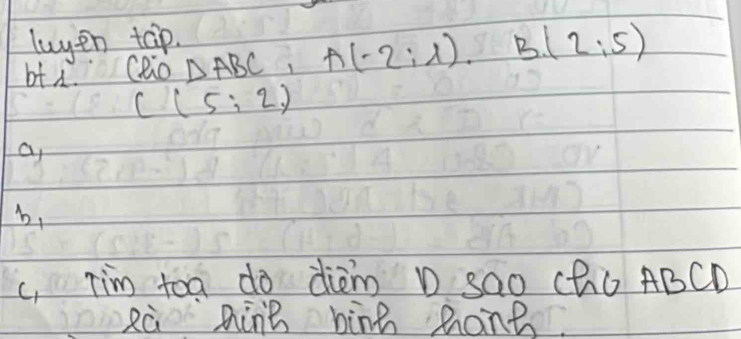 luyện tập.
bt1. Cho ΔABC, A(-2;1). B.(2;5)
C(5;2)
a,
b,
c, Tìm toạ độ điểm D sao cho ABCD
là hình bình hành.